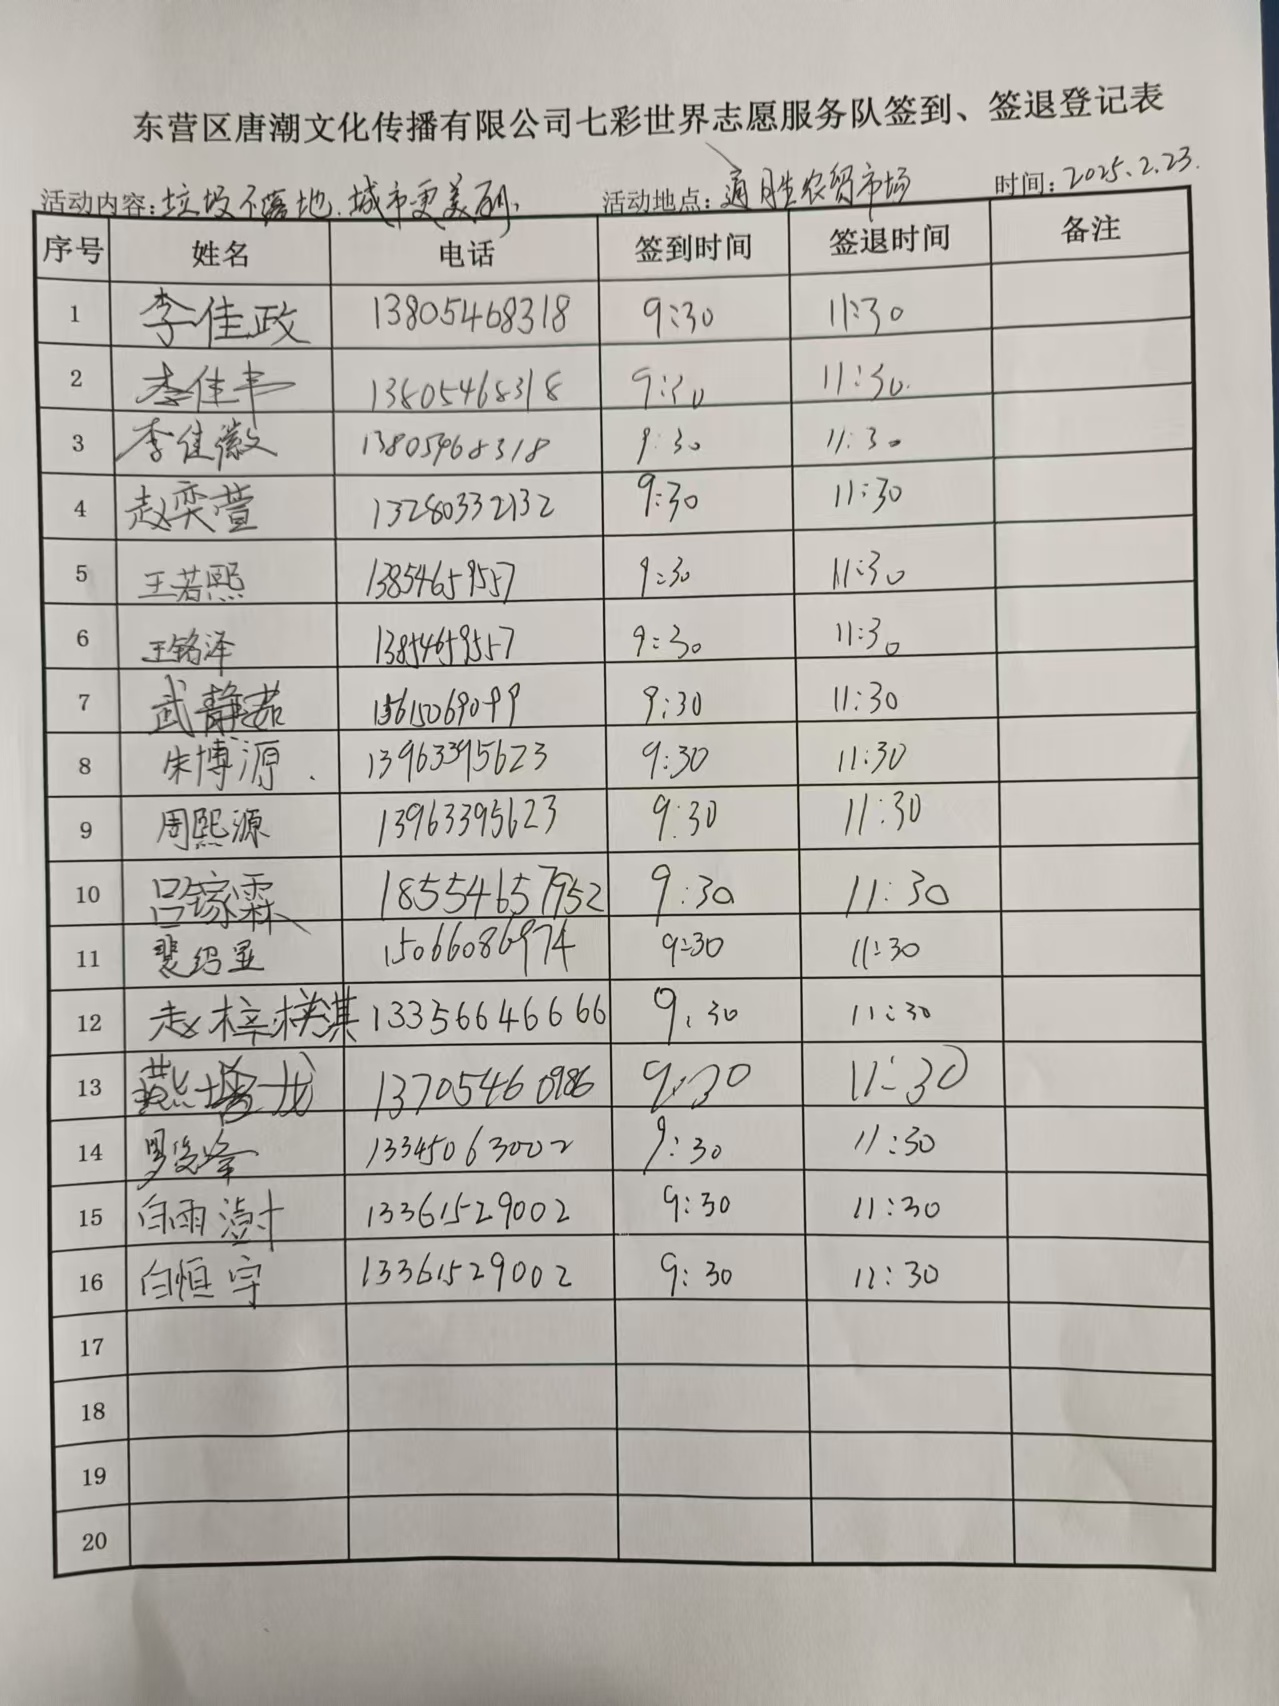 东营区唐潮文化传播有限公司七彩世界志愿服务队签到、签退登记表
活动内容:垃圾不落地.城市更美丽. 活动地点:通胜农贸市场 时间:2025.2.23.
序号 姓名 电话 签到时间 签退时间 备注
1 李佳政 13805468318 9:30 11:30
2 李佳丰 13805468318 9:30 11:30
3 李佳徽 13805468318 9:30 11:30
4 赵奕萱 13280332132 9:30 11:30
5 王若熙 13854659557 9:30 11:30
6 王铭泽 13854659557 9:30 11:30
7 武静茹 15615069099 9:30 11:30
8 朱博源 13963395623 9:30 11:30
9 周熙源 13963395623 9:30 11:30
10 吕镓霖 18554657952 9:30 11:30
11 裴绍显 15066086974 9:30 11:30
12 赵梓棋 13356646666 9:30 11:30
13 燕 13705460986 9:30 11:30
14 罗 13345063002 9:30 11:30
15 白雨澍 13361529002 9:30 11:30
16 白恒宇 13361529002 9:30 11:30
17
18
19
20